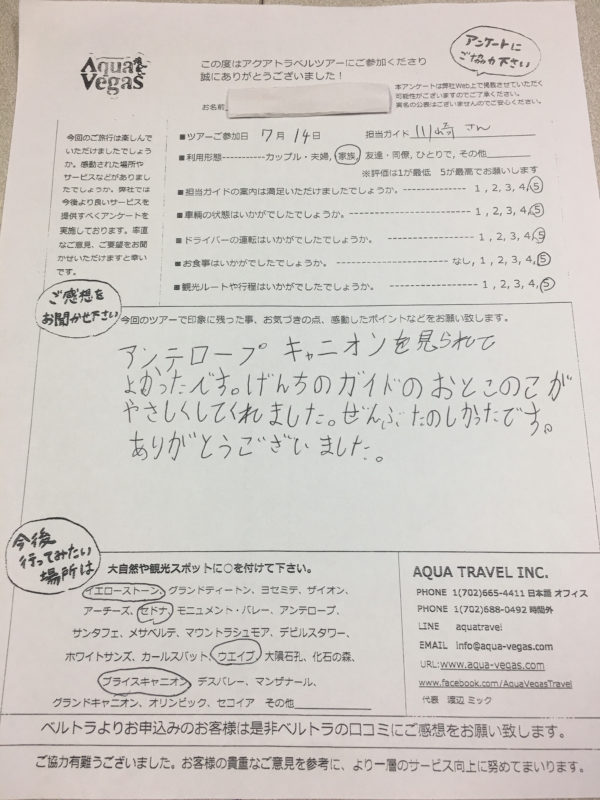 Aqua
Vegas
この度はアクアトラベルツアーにご参加くださり
誠にありがとうございました！
アンケートに
ご協力下さい
本アンケートは弊社Web上で掲載させていただく
可能性がございますのでご了承ください。
実名の公表はございませんのでご安心ください。
お名前
今回のご旅行は楽しんで
いただけましたでしょう
か。感動された場所や
サービスなどがありまし
たでしょうか。弊社では
今後より良いサービスを
提供すべくアンケートを
実施しております。率直
なご意見、ご要望をお聞
かせいただけますと幸い
です。
■ツアーご参加日 7月 14日 担当ガイド 川崎 さん
■利用形態-----------カップル・夫婦, 家族, 友達・同僚, ひとりで, その他
※評価は1が最低 5が最高でお願いします
■担当ガイドの案内は満足いただけましたでしょうか。 --------------- 1 , 2, 3, 4, 5
■車輌の状態はいかがでしたでしょうか。 --------------- 1 , 2, 3, 4, 5
■ドライバーの運転はいかがでしたでしょうか。 --------------- 1 , 2, 3, 4, 5
■お食事はいかがでしたでしょうか。 --------------- なし, 1, 2, 3, 4, 5
■観光ルートや行程はいかがでしたでしょうか。 --------------- 1 , 2, 3, 4, 5
ご感想を
お聞かせ下さい
今回のツアーで印象に残った事、お気づきの点、感動したポイントなどをお願い致します。
アンテロープ キャニオンを見られて
よかったです。げんちのガイドのおとこのこが
やさしくしてくれました。ぜんぶたのしかったです。
ありがとうございました。
今後
行ってみたい
場所は
大自然や観光スポットに○を付けて下さい。
イエローストーン、グランドティートン、ヨセミテ、ザイオン、
アーチーズ、セドナ、モニュメント・バレー、アンテロープ、
サンタフェ、メサベルテ、マウントラシュモア、デビルスタワー、
ホワイトサンズ、カールスバット、ウエイブ、大隕石孔、化石の森、
ブライスキャニオン、デスバレー、マンザナール、
グランドキャニオン、オリンピック、セコイア その他
AQUA TRAVEL INC.
PHONE 1(702)665-4411 日本語 オフィス
PHONE 1(702)688-0492 時間外
LINE aquatravel
EMAIL info@aqua-vegas.com
URL:www.aqua-vegas.com
www.facebook.com/AquaVegasTravel
代表 渡辺 ミック
ベルトラよりお申込みのお客様は是非ベルトラの口コミにご感想をお願い致します。
ご協力有難うございました。お客様の貴重なご意見を参考に、より一層のサービス向上に努めてまいります。